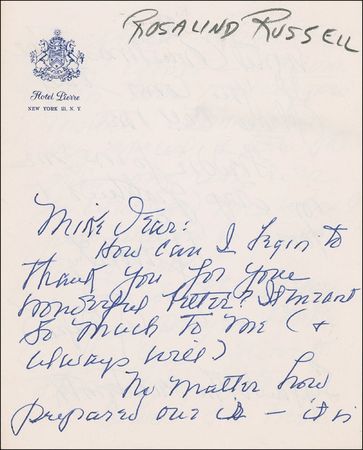 ROSALIND RUSSELL
Hotel Pierre
NEW YORK 21, N. Y.
Mike Dear:
How can I begin to
thank you for your
wonderful letter? It meant
so much to me (+
always will)
No matter how
prepared one is – it is